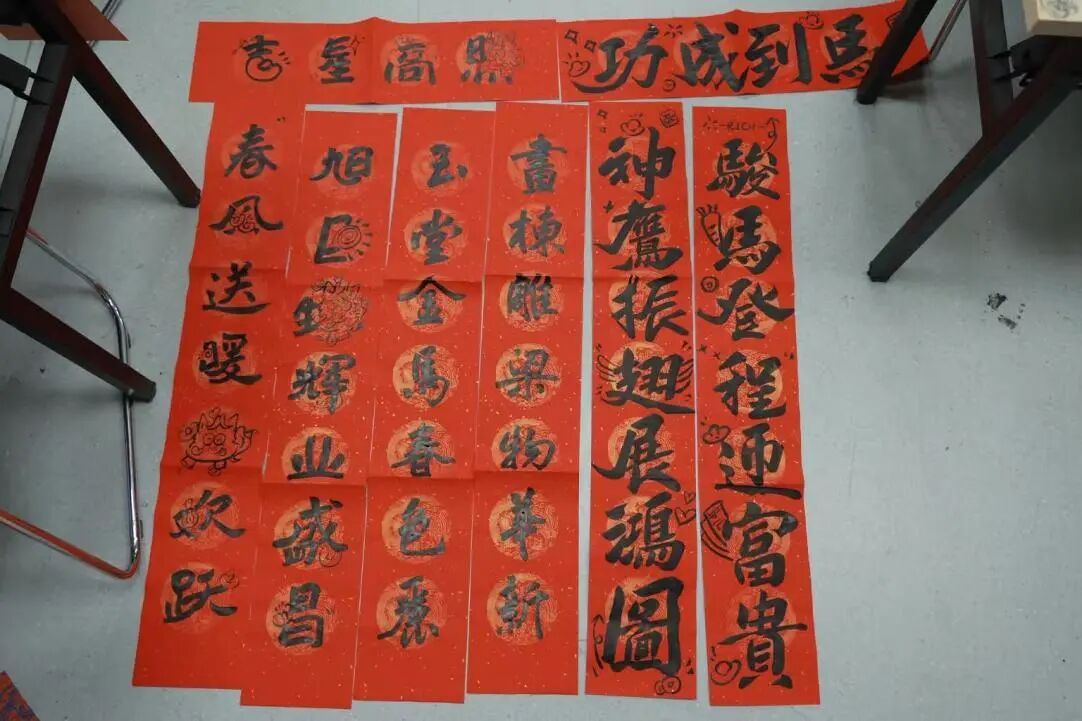 吉星高照
馬到成功
RICH
駿馬登程迎富貴
神鷹振翅展鴻圖
畫棟雕梁物華新
玉堂金馬春色
旭日生輝业盛昌
春風送暖欢跃